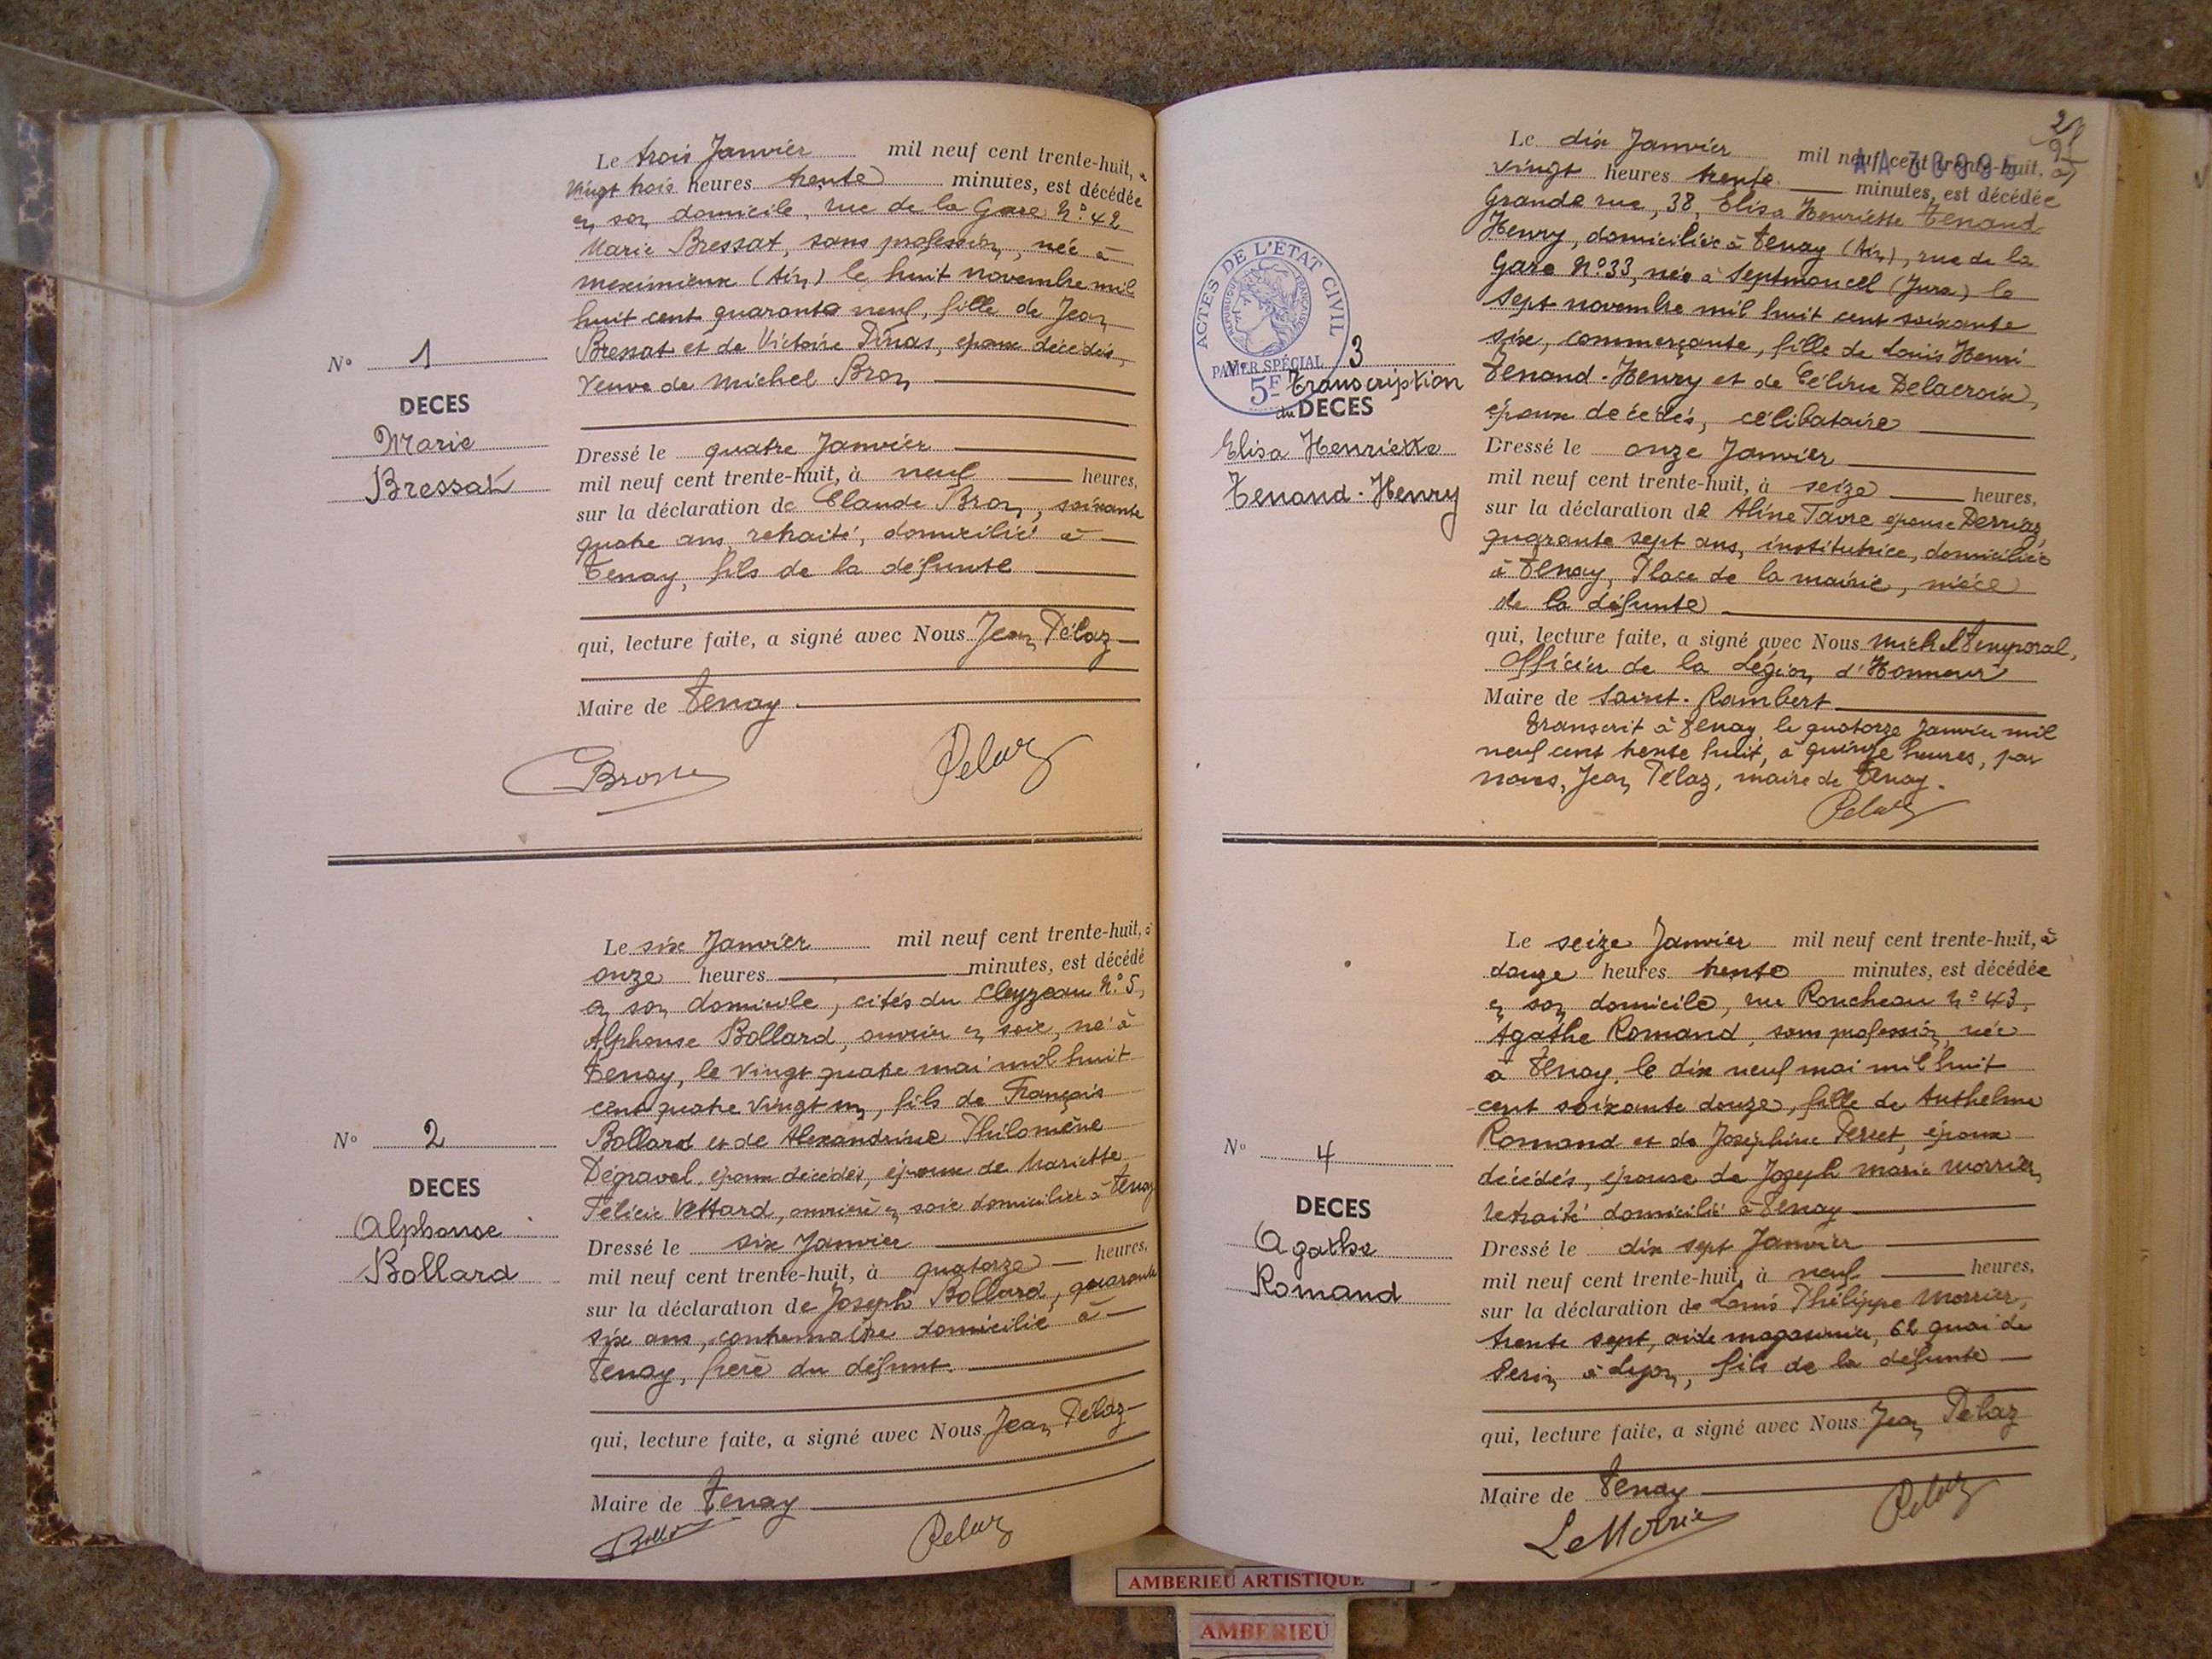 Le trois Janvier mil neuf cent trente-huit, à
vingt trois heures trente minutes, est décédée
en son domicile, rue de la Gare N° 42
Marie Bressat, sans profession, née à
Meximieux (Ain) le huit novembre mil
huit cent quarante neuf, fille de Jean
Bressat et de Victoire Dinas, époux décédés,
Veuve de Michel Bron
N° 1
DECES
Marie
Bressat
Dressé le quatre Janvier
mil neuf cent trente-huit, à neuf heures,
sur la déclaration de Claude Bron, soixante
quatre ans, retraité, domicilié à
Tenay, fils de la défunte
qui, lecture faite, a signé avec Nous Jean Pélaz
Maire de Tenay
Pelaz
Le six Janvier mil neuf cent trente-huit, à
onze heures minutes, est décédé
en son domicile, cités du Cleyzeau N° 5,
Alphonse Bollard, ouvrier en soie, né à
Tenay, le vingt quatre mai mil huit
cent quatre vingt un, fils de François
Bollard et de Alexandrine Philomène
Dégravel, époux décédés, époux de Mariette
Félicie Vettard, ouvrière en soie domiciliée à Tenay
N° 2
DECES
Alphonse
Bollard
Dressé le six Janvier
mil neuf cent trente-huit, à quatorze heures,
sur la déclaration de Joseph Bollard, quarante
six ans, contremaître domicilié à
Tenay, frère du défunt.
qui, lecture faite, a signé avec Nous Jean Pélaz
Maire de Tenay
Pelaz
Le dix Janvier mil neuf cent trente-huit, à
vingt heures trente minutes, est décédée
Grande rue, 38, Elisa Henriette Tenand-
Henry, domiciliée à Tenay (Ain), rue de la
Gare N° 33, née à Septmoncel (Jura) le
sept novembre mil huit cent soixante
six, commerçante, fille de Louis Henri
Tenand-Henry et de Céline Delacroix,
époux décédés, célibataire
ACTES DE L'ÉTAT CIVIL
RÉPUBLIQUE FRANÇAISE
PAPIER SPÉCIAL
5F
3
Transcription
du DECES
Elisa Henriette
Tenand-Henry
Dressé le onze Janvier
mil neuf cent trente-huit, à seize heures,
sur la déclaration de Aline Favre épouse Derriaz,
quarante sept ans, institutrice, domiciliée
à Tenay, Place de la mairie, nièce
de la défunte
qui, lecture faite, a signé avec Nous Michel Temporal,
Officier de la Légion d'Honneur
Maire de Saint-Rambert
Transcrit à Tenay, le quatorze Janvier mil
neuf cent trente huit, à quinze heures, par
nous, Jean Pélaz, maire de Tenay.
Pelaz
Le seize Janvier mil neuf cent trente-huit, à
douze heures trente minutes, est décédée
en son domicile, rue Roucheau N° 43,
Agathe Romand, sans profession, née
à Tenay, le dix neuf mai mil huit
cent soixante douze, fille de Anthelme
Romand et de Joséphine Perret, époux
décédés, épouse de Joseph Marie Morrier,
retraité domicilié à Tenay
N° 4
DECES
Agathe
Romand
Dressé le dix sept Janvier
mil neuf cent trente-huit, à neuf heures,
sur la déclaration de Louis Philippe Morrier,
trente sept, aide magasinier, 62 quai de
Serin à Lyon, fils de la défunte
qui, lecture faite, a signé avec Nous Jean Pélaz
Maire de Tenay
Pelaz
AMBERIEU ARTISTIQUE
AMBERIEU